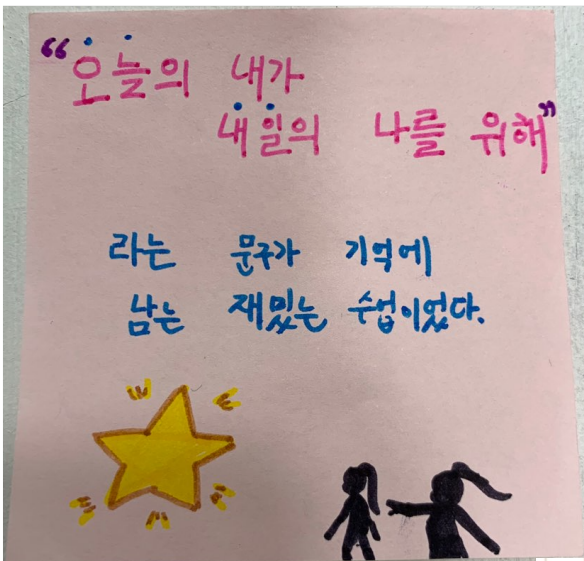 “오늘의 내가
내일의 나를 위해”
라는 문구가 기억에
남는 재밌는 수업이었다.